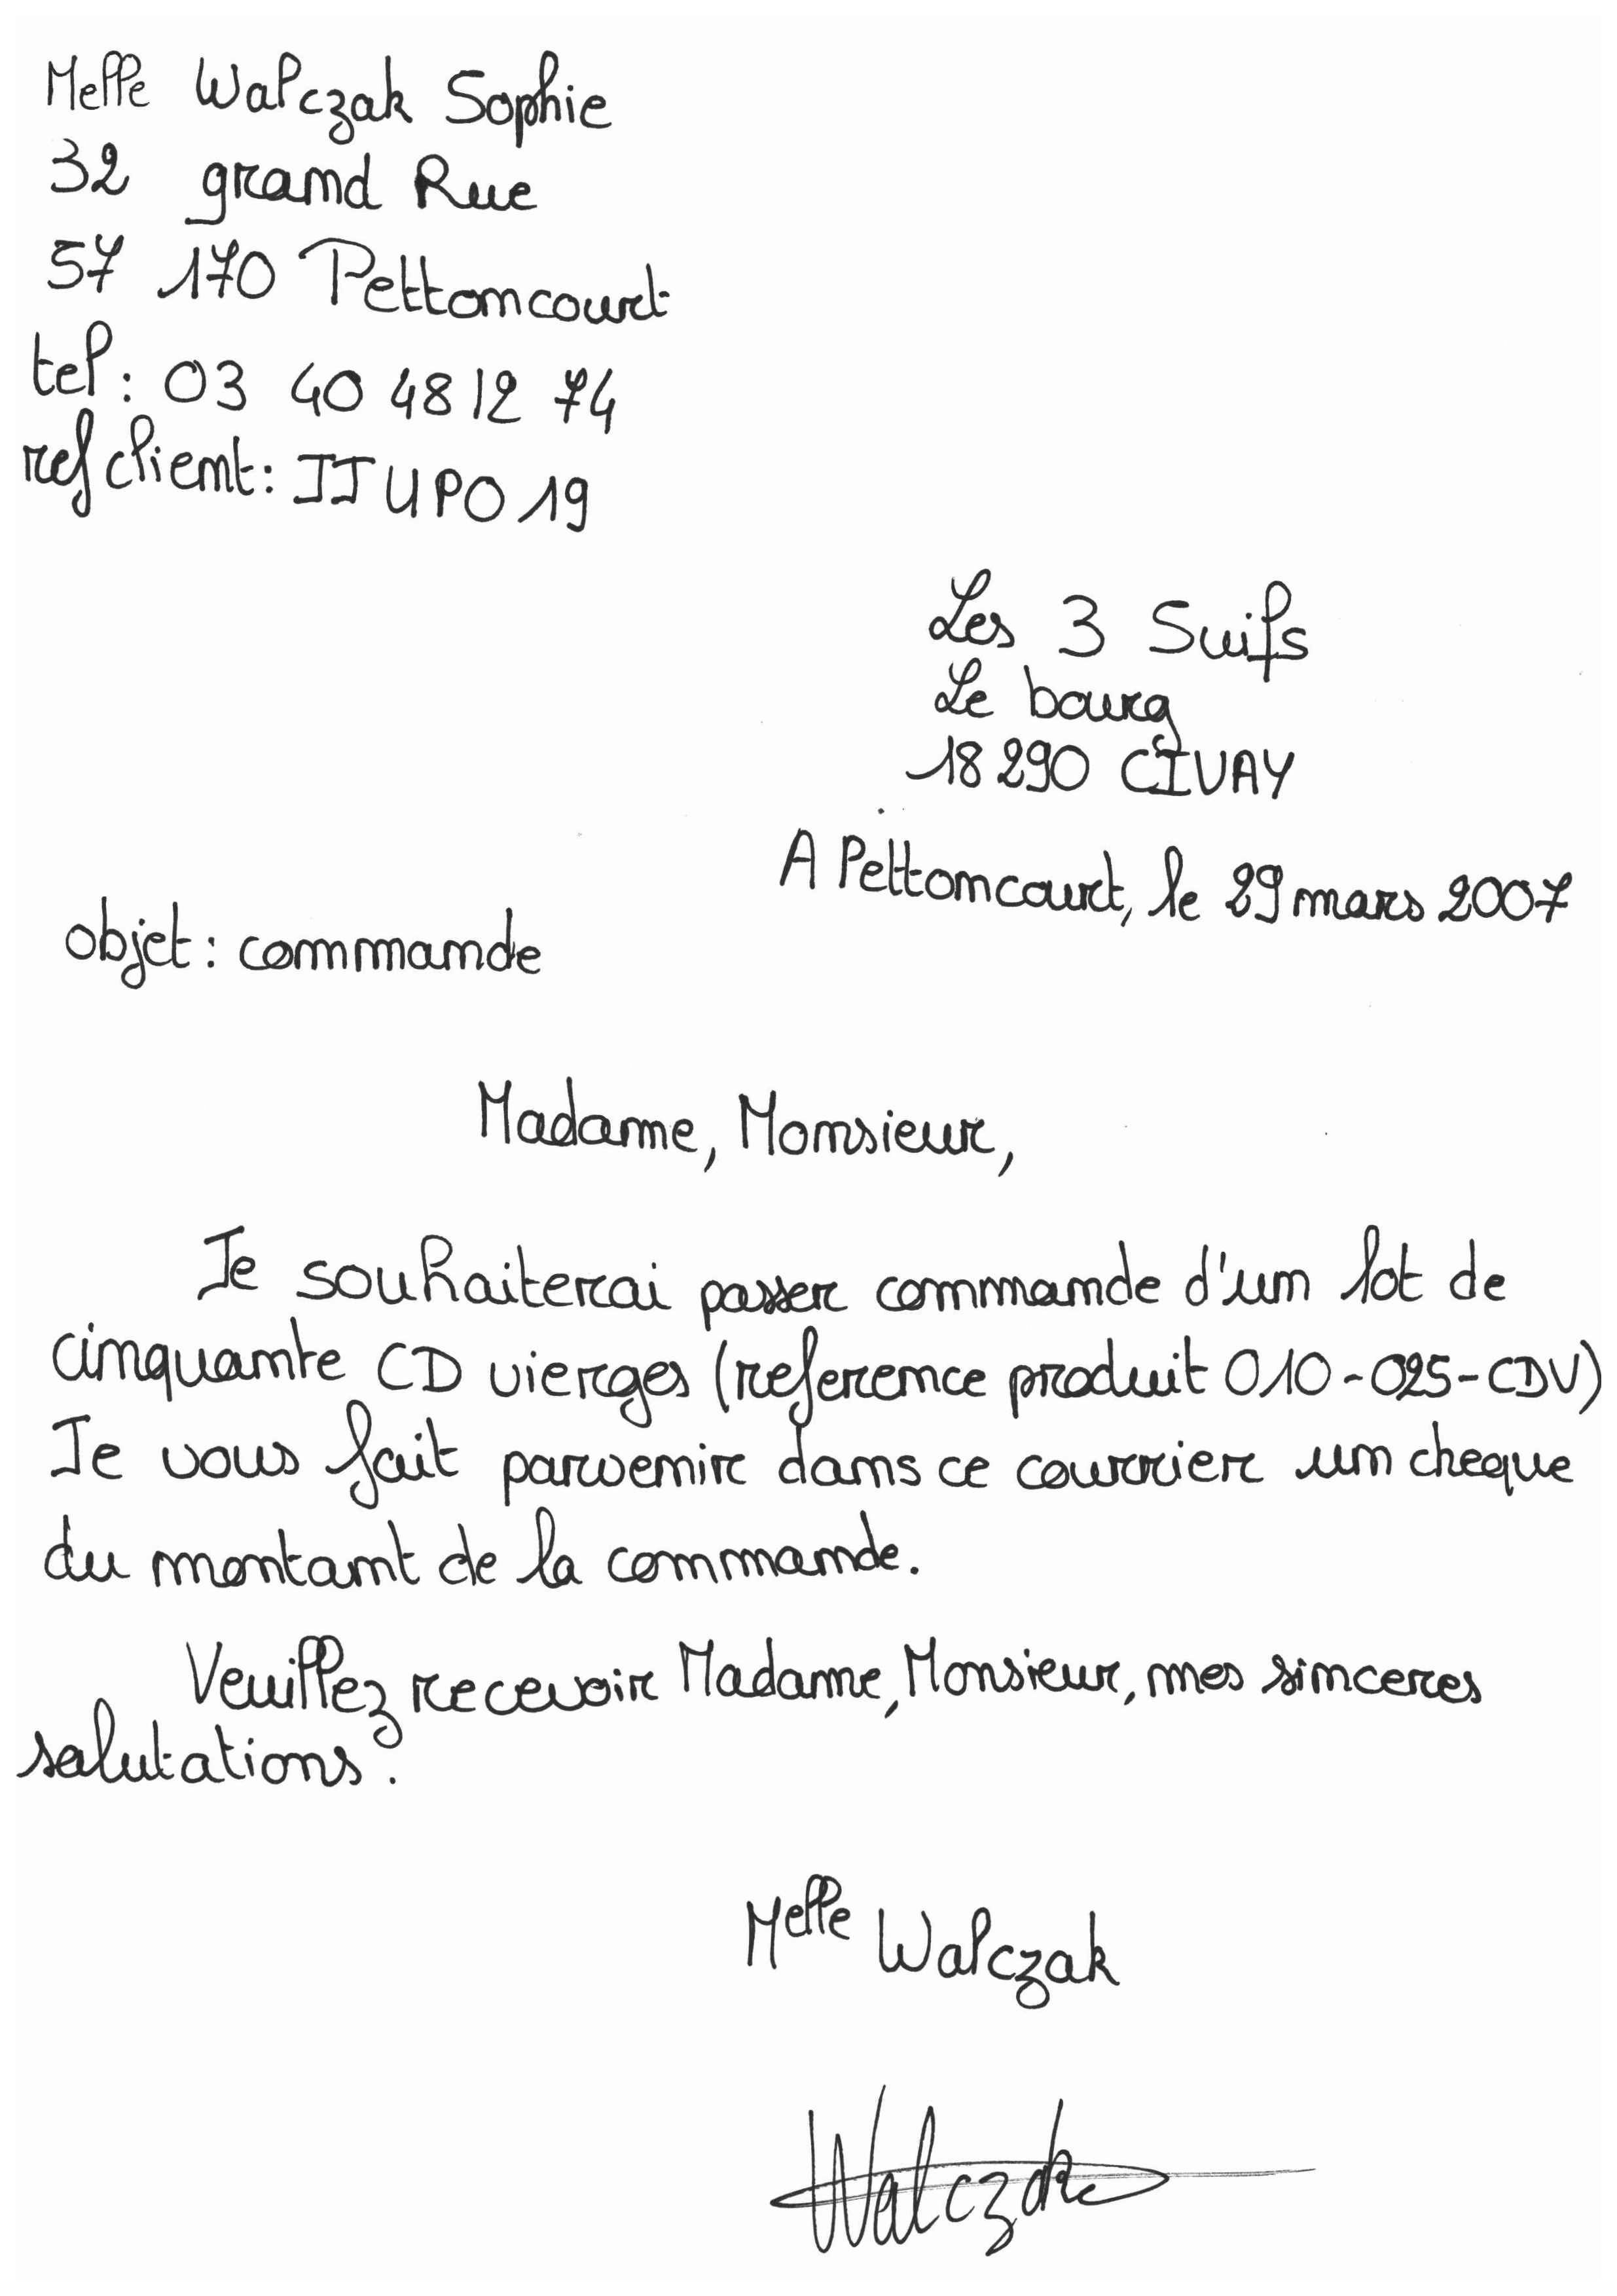 Melle Walczak Sophie
32 grand Rue
57 170 Pettoncourt
tel : 03 40 48 12 74
ref client : IJUPO 19
Les 3 Suifs
Le bourg
18 290 CIVAY
A Pettoncourt, le 29 mars 2007
objet : commande
Madame, Monsieur,
Je souhaiterai passer commande d'un lot de
cinquante CD vierges (reference produit 010-025-CDV)
Je vous fait parvenir dans ce courrier un cheque
du montant de la commande.
Veuillez recevoir Madame, Monsieur, mes sinceres
salutations.
Melle Walczak
Walczak